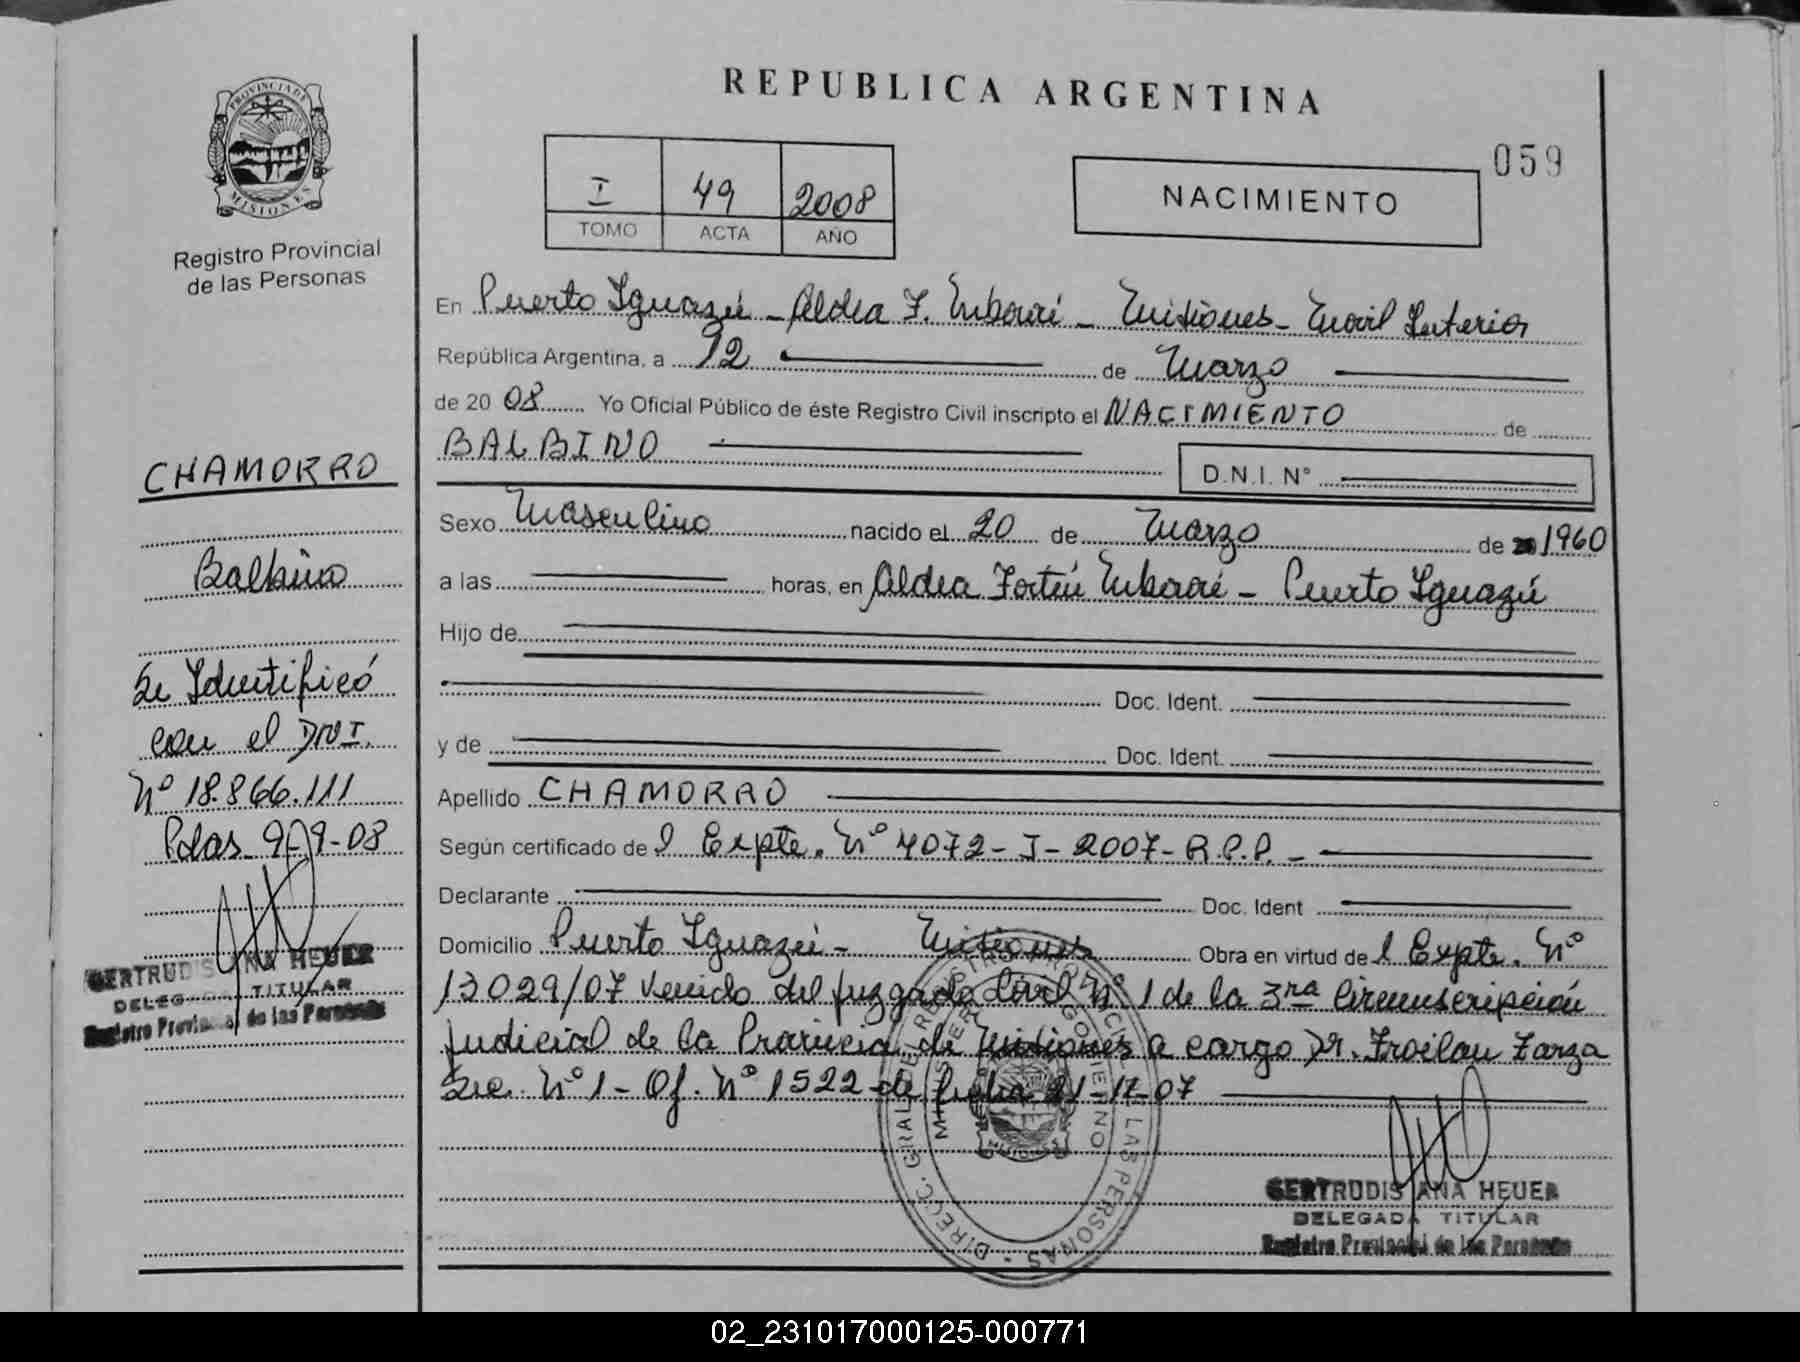 REPUBLICA ARGENTINA
059
PROVINCIA DE MISIONES
Registro Provincial
de las Personas
I 49 2008
TOMO ACTA AÑO
NACIMIENTO
En Puerto Iguazú - Aldea F. Mbororé - Misiones - Movil Interior
República Argentina, a 12 de Marzo
de 20 08 Yo Oficial Público de éste Registro Civil inscripto el NACIMIENTO de
BALBINO D.N.I. Nº
Sexo Masculino nacido el 20 de Marzo de 1960
a las horas, en Aldea Fortín Mbororé - Puerto Iguazú
Hijo de
Doc. Ident.
y de Doc. Ident.
Apellido CHAMORRO
Según certificado de l Expte. Nº 4072-I-2007-R.P.P. -
Declarante Doc. Ident
Domicilio Puerto Iguazú - Misiones Obra en virtud de l Expte. Nº
13029/07 venido del Juzgado Civil Nº 1 de la 3ra Circunscripción
Judicial de la Provincia de Misiones a cargo Dr. Froilan Zarza
Sec. Nº 1 - Of. Nº 1522 de fecha 21-11-07
CHAMORRO
Balbino
Se Identificó
con el DNI.
Nº 18.866.111
Pdas 9-9-08
GERTRUDIS ANA HEUER
DELEGADA TITULAR
Registro Provincial de las Personas
DIREC. GRAL. DEL REGISTRO PROVINCIAL DE LAS PERSONAS
GERTRUDIS ANA HEUER
DELEGADA TITULAR
Registro Provincial de las Personas
02_231017000125-000771